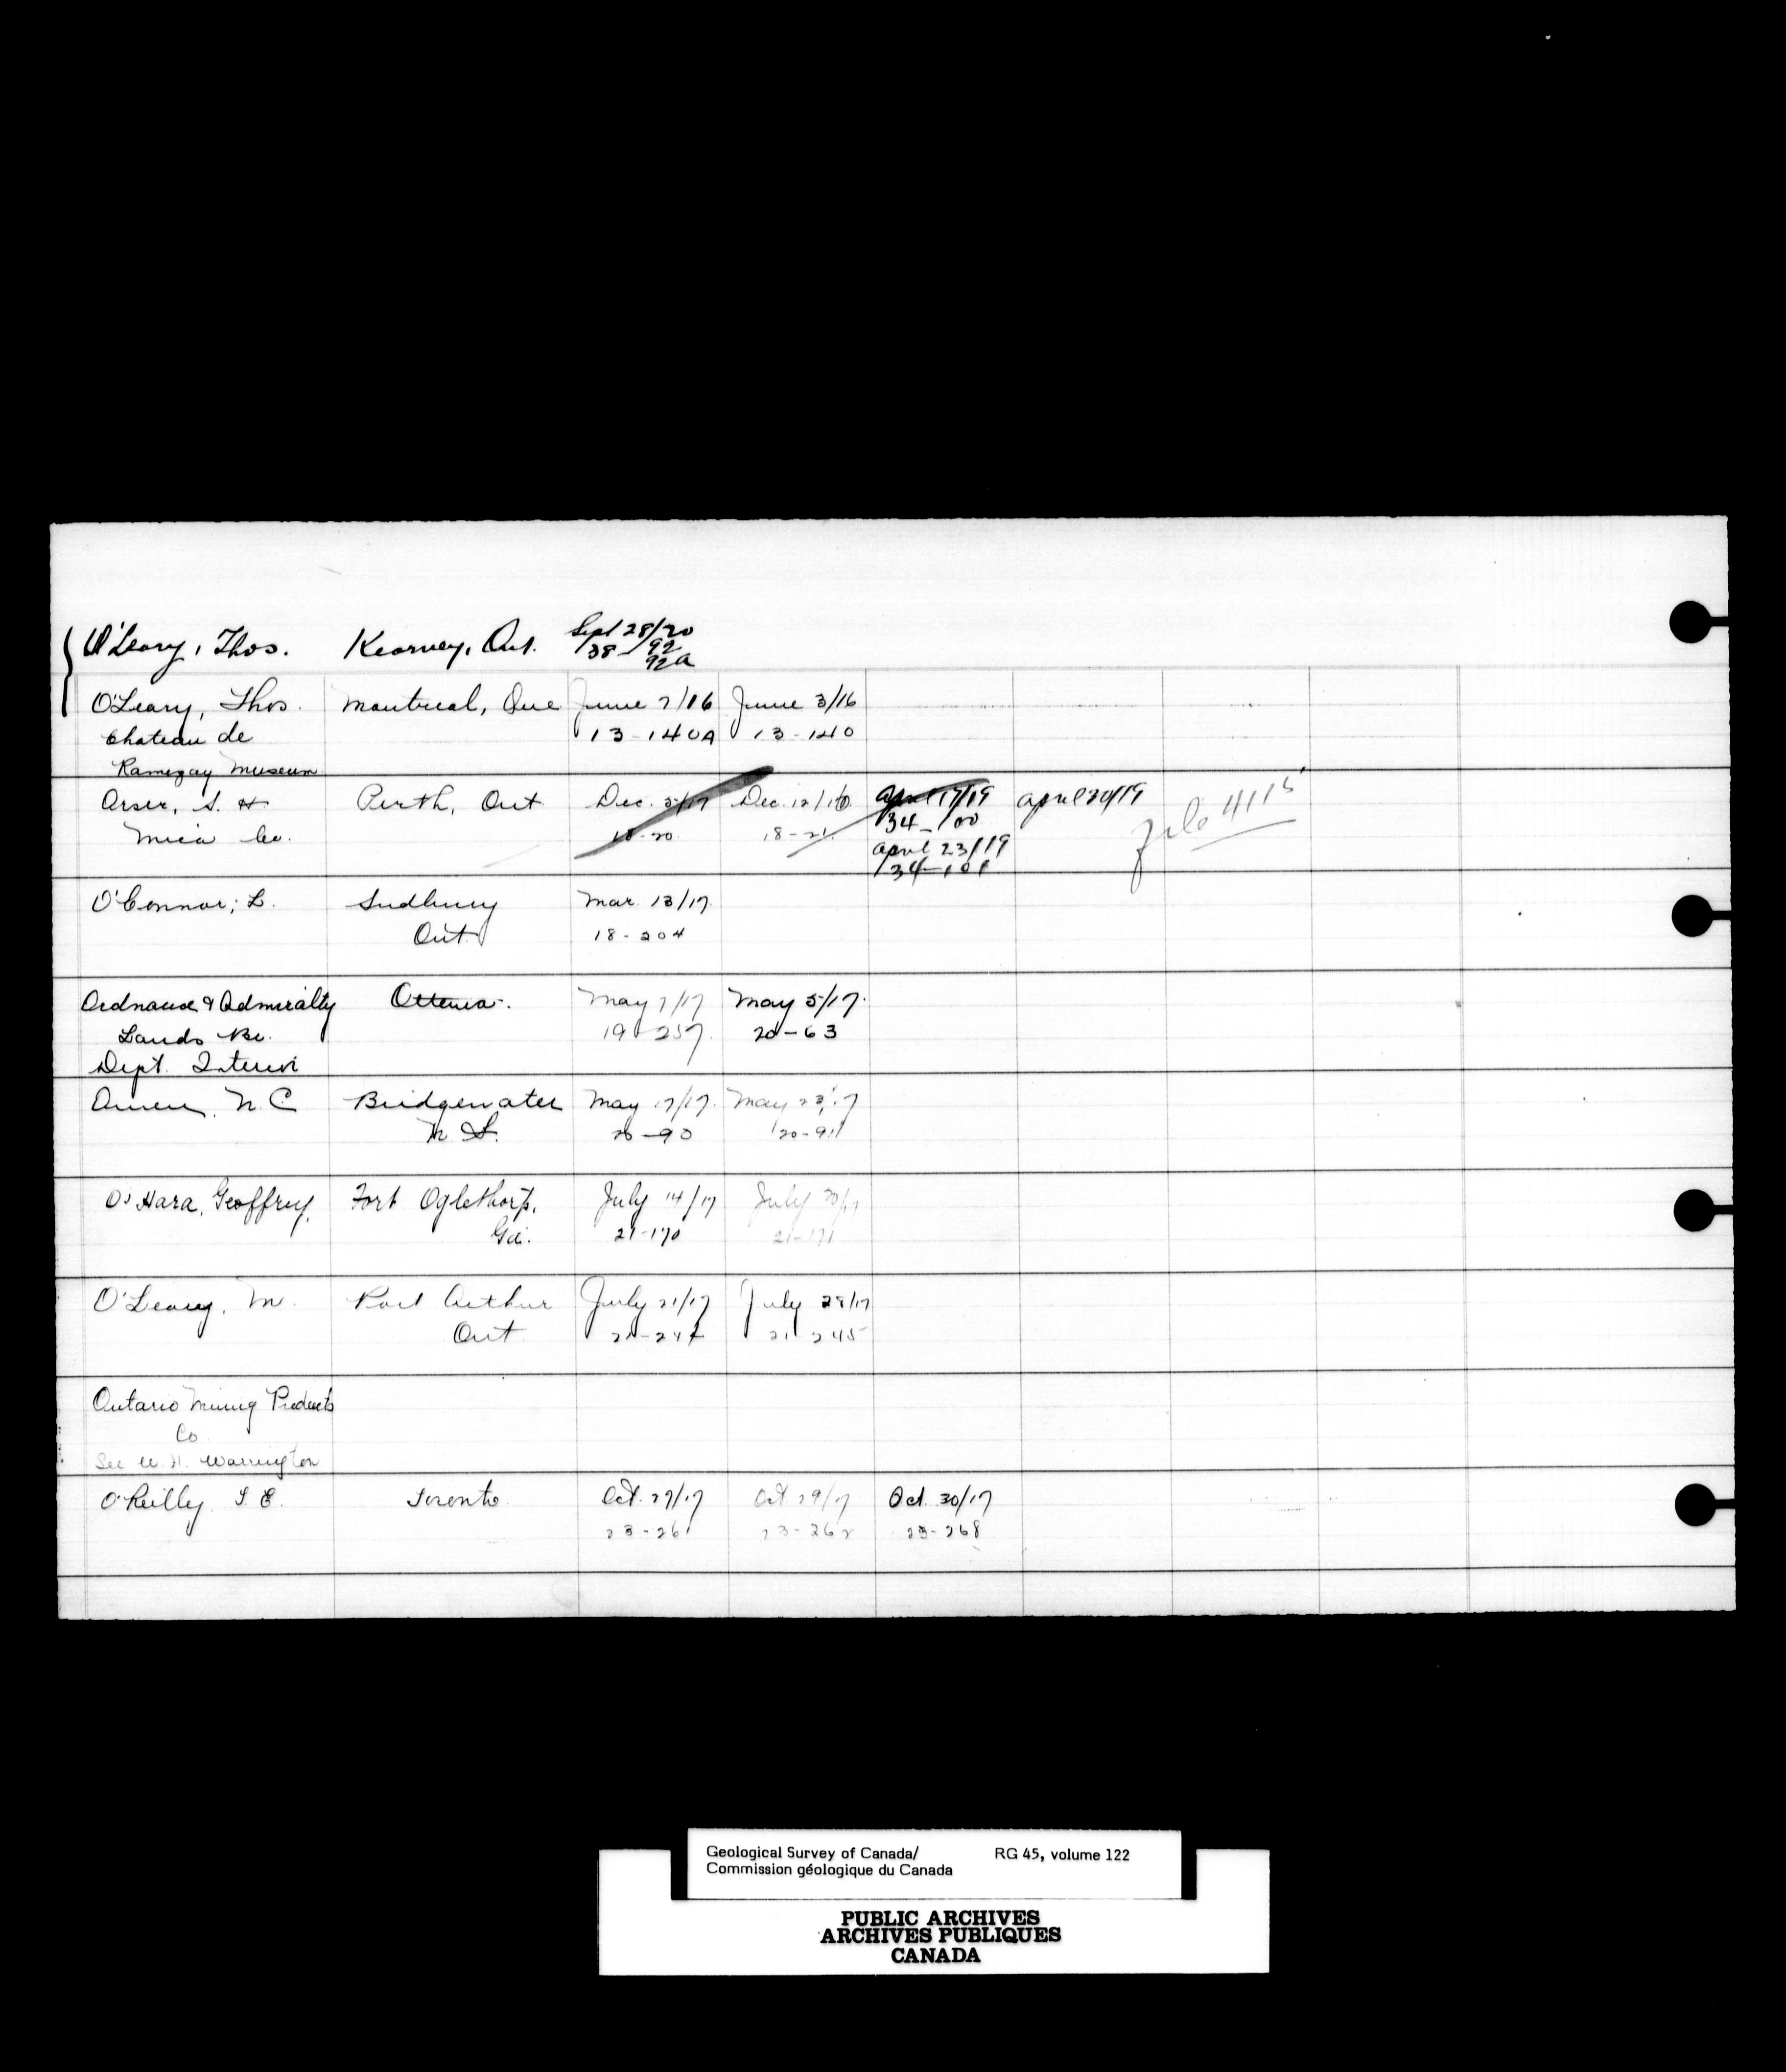 O'Leary, Thos. Kearney, Ont. Sept 28/20
38-92
92a
O'Leary, Thos. Montreal, Que June 7/16 June 3/16
Chateau de 13-140A 13-140
Ramezay Museum
Orser, S. H Perth, Ont Dec. 5/17 Dec. 12/16 April 17/19 April 24/19
Mica Co. 18-20 18-21 34-100 File 4115
April 23/19
34-101
O'Connor, L. Sudbury Mar. 13/17
Ont 18-204
Ordnance & Admiralty Ottawa. May 7/17 May 5/17
Lands Br. 19-257 20-63
Dept. Interior
Owen, N. C. Bridgewater May 17/17 May 23/17
N. S. 20-90 20-91
O'Hara, Geoffrey, Fort Oglethorp, July 14/17 July 20/17
Ga. 21-170 21-171
O'Leary, M. Port Arthur July 21/17 July 28/17
Ont 21-244 21-245
Ontario Mining Products
Co
See W. H. Warrington
O'Reilly T. E. Toronto Oct. 27/17 Oct 29/17 Oct. 30/17
23-261 23-262 23-268
Geological Survey of Canada/ RG 45, volume 122
Commission géologique du Canada
PUBLIC ARCHIVES
ARCHIVES PUBLIQUES
CANADA